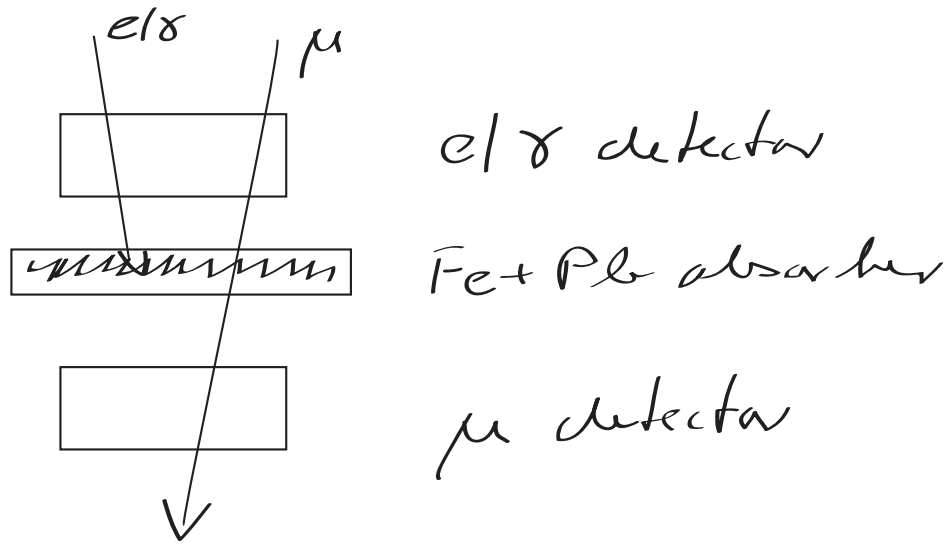 e/γ μ
e/γ detector
Fe+Pb absorber
μ detector